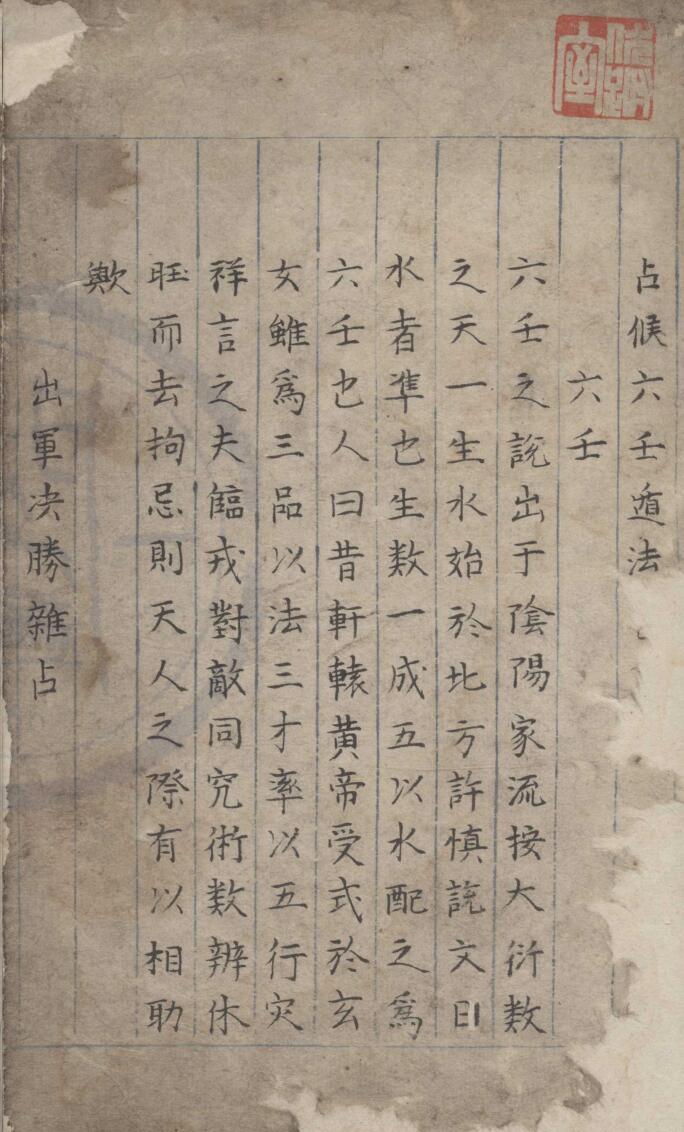 占候六壬遁法
六壬
六壬之說出于陰陽家流按大衍数
之天一生水始於北方許慎說文曰
水者準也生数一成五以水配之為
六壬也人曰昔軒轅黄帝受式於玄
女雖為三品以法三才率以五行灾
祥言之夫臨戎對敵同究術数辨休
旺而去拘忌則天人之際有以相助
歟
出軍决勝雜占